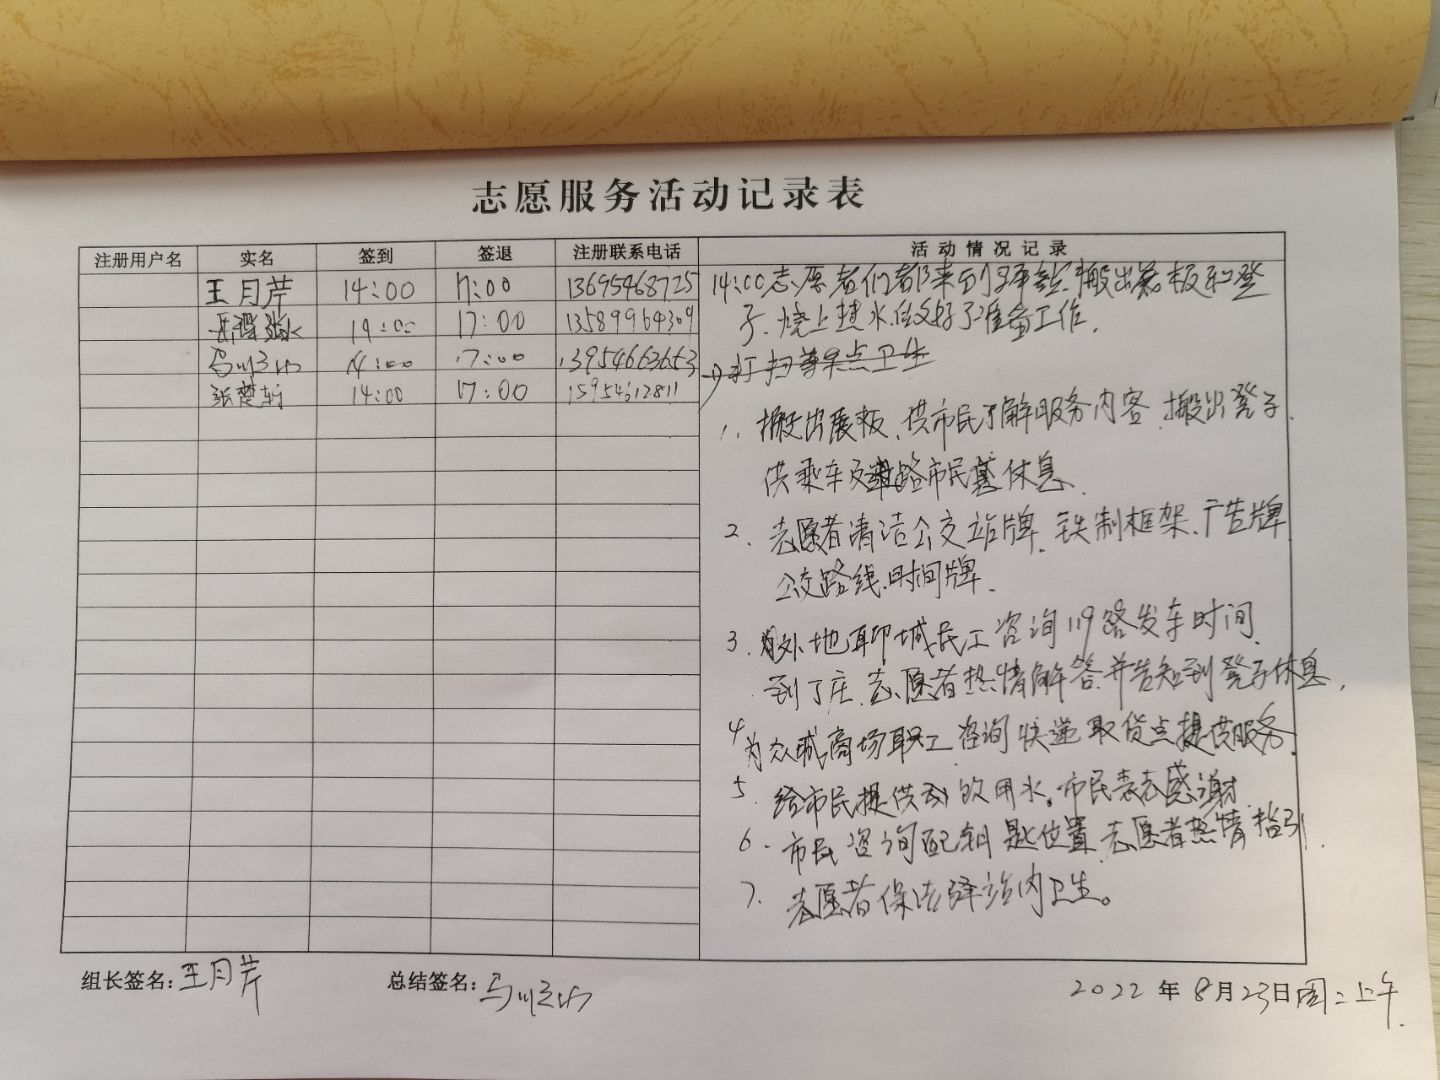 志愿服务活动记录表
注册用户名 实名 签到 签退 注册联系电话 活动情况记录
王月芹 14:00 17:00 13695468725
14:00 17:00 13589964309
14:00 17:00 13954663653
张楚轩 14:00 17:00 15954612811
14:00志愿者们都来到驿站,搬出展板和登
子、烧上热水,做好了准备工作.
→打扫 卫生
1、搬出展板、供市民了解服务内容、搬出凳子、
供乘车及 路市民 休息.
2、志愿者清洁公交站牌、铁制框架、广告牌
公交路线、时间牌.
3、为外地聊城民工咨询119路发车时间、
到丁庄、志愿者热情解答并告知到凳子休息,
4 为众成商场职工咨询快递取货点提供服务.
5、给市民提供 饮用水。市民表志感谢.
6、市民咨询配钥匙位置、志愿者热情指引.
7、志愿者保洁驿站内卫生。
组长签名:王月芹 总结签名: 2022年8月23日周二上午.